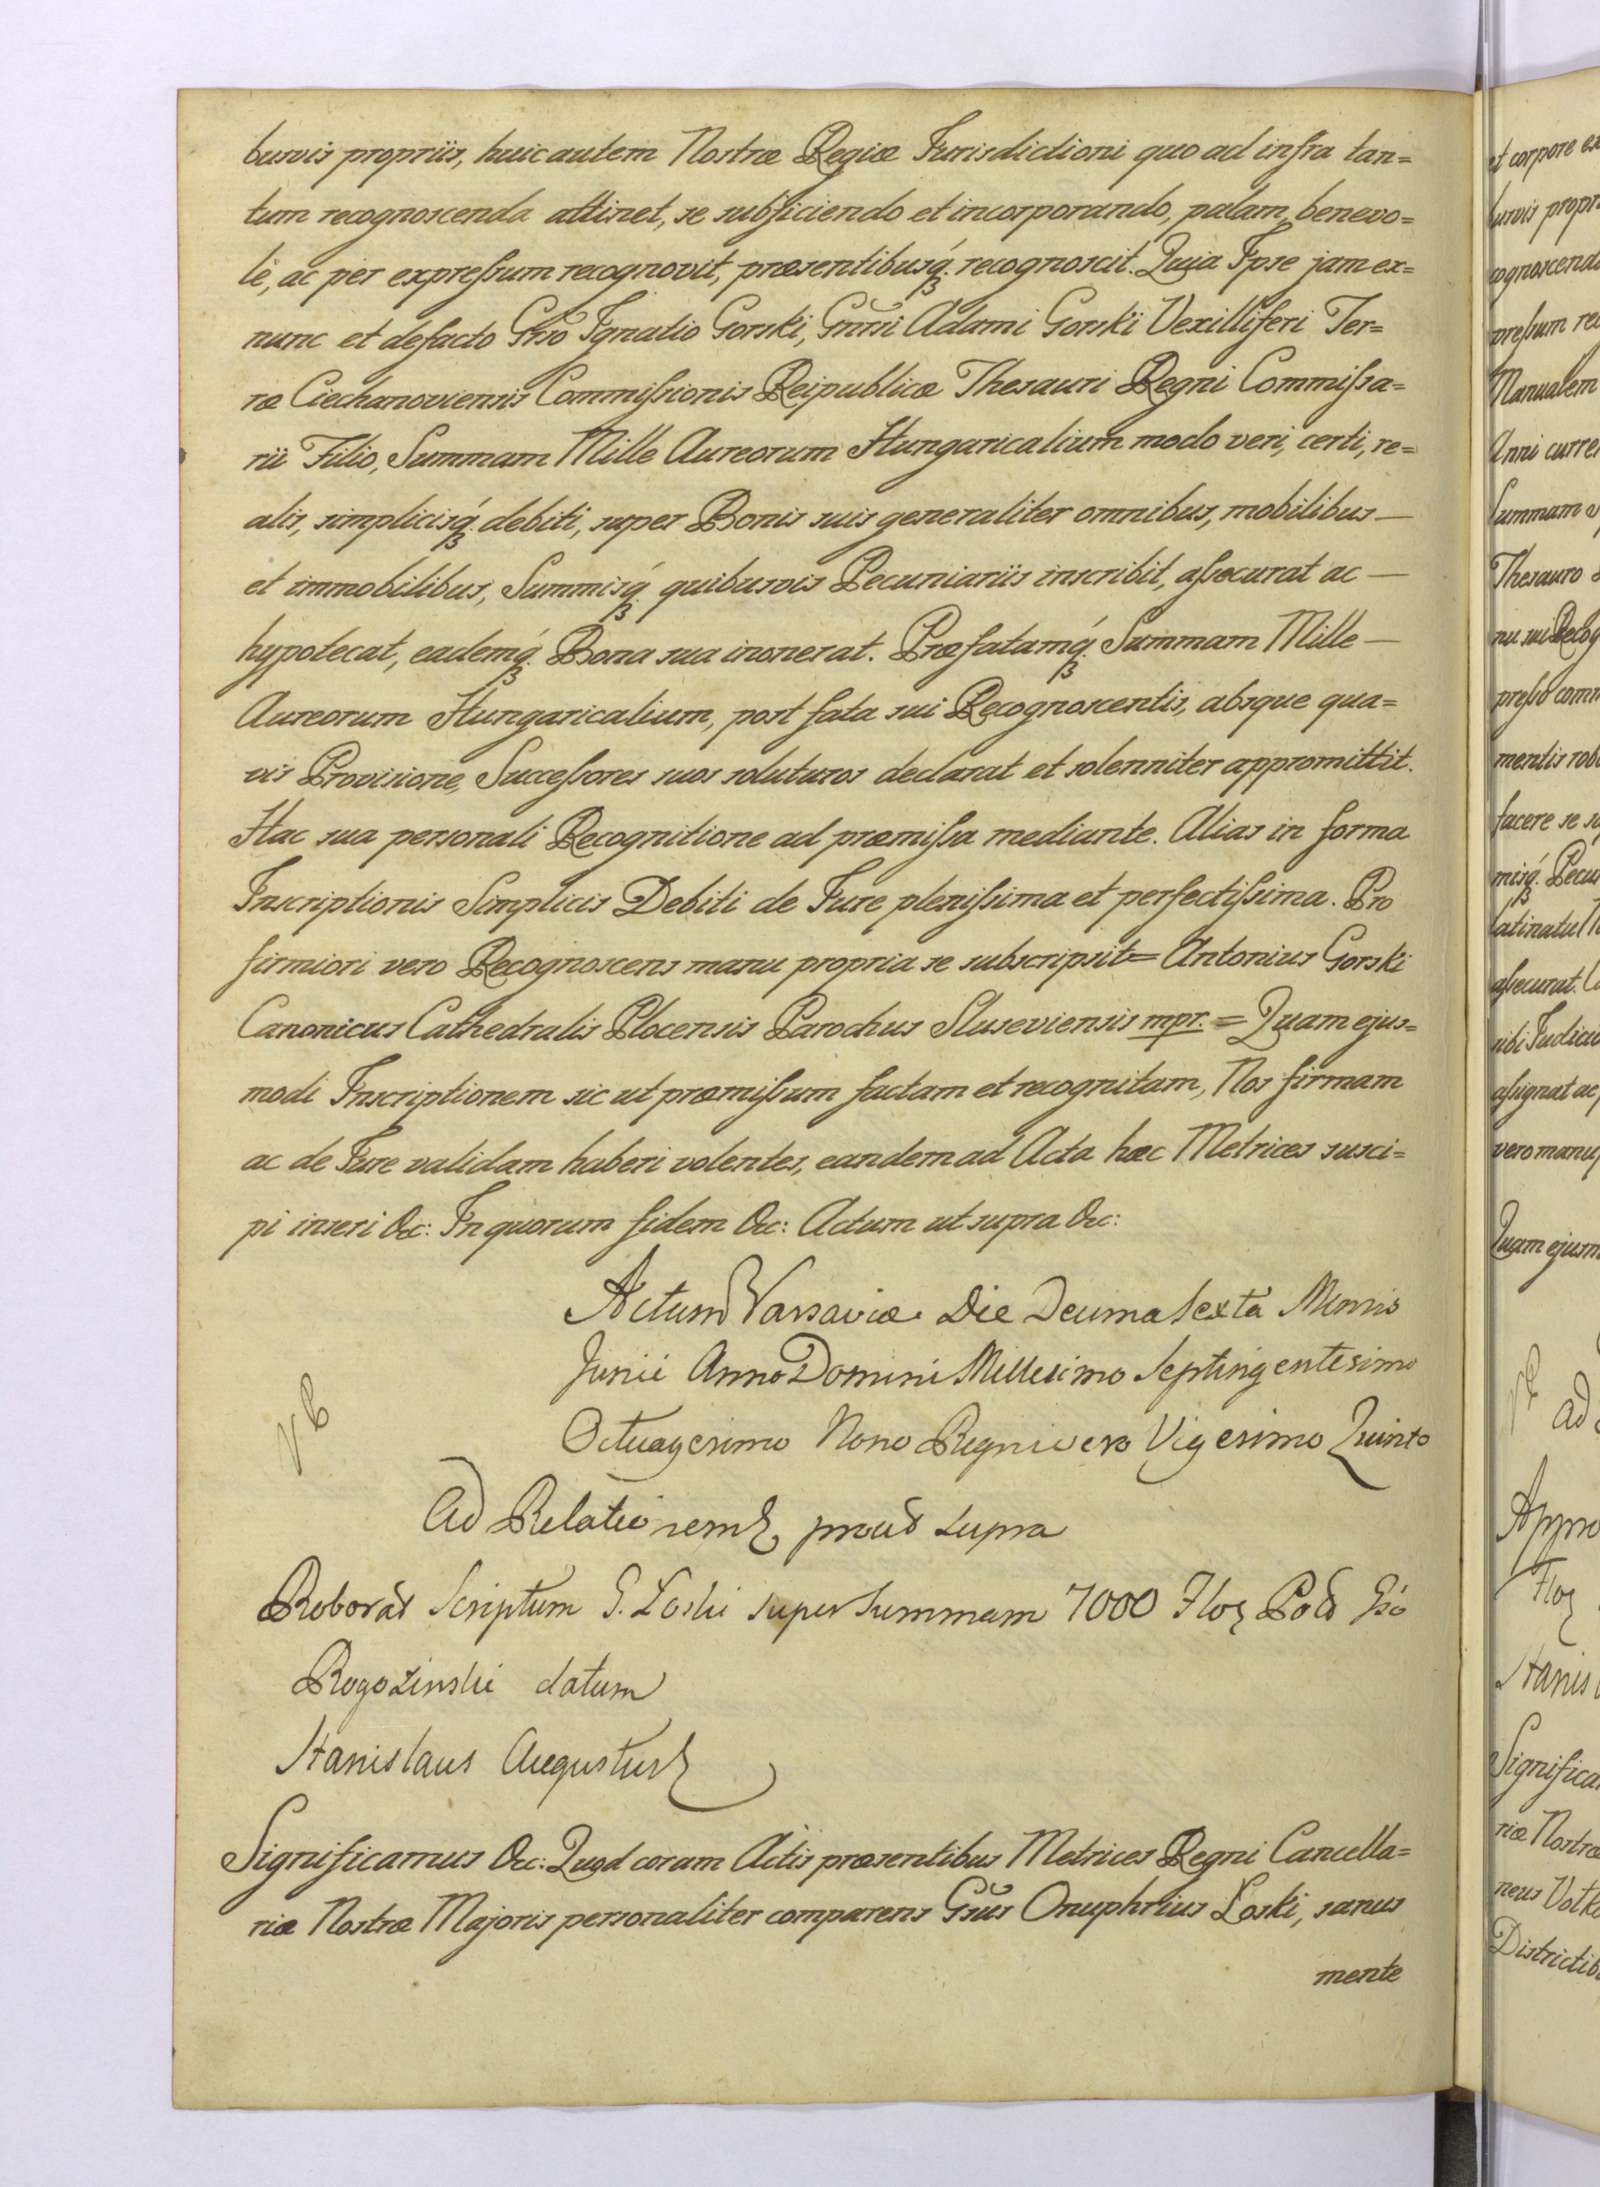 busvis propriis, huic autem Nostræ Regiæ Jurisdictioni quo ad infra tan=
tum recognoscenda attinet, se subjiciendo et incorporando, palam, benevo=
lè, ac per expreſsum recognovit, præsentibusq́. recognoscit. Quia Ipse jam ex=
nunc et defacto Gnso Ignatio Gorski, Gnrsi Adami Gorski Vexilliferi Ter=
ræ Ciechanoviensis Commiſsionis Reipublicæ Thesauri Regni Commiſsa=
rii Filio, Summam Mille Aureorum Hungaricalium modo veri, certi, re=
alis, simplicisq́. debiti, super Bonis suis generaliter omnibus, mobilibus —
et immobilibus, Summisq́. quibusvis Pecuniariis inscribit, aſsecurat ac —
hypotecat, eademq́. Bona sua inonerat. Præfatamq́. Summam Mille —
Aureorum Hungaricalium, post fata sui Recognoscentis, absque qua=
vis Provisione, Succeſsores suos soluturos declarat et solenniter appromittit.
Hac sua personali Recognitione ad præmiſsa mediante. Alias in forma
Inscriptionis Simplicis Debiti de Jure pleniſsima et perfectiſsima. Pro
firmiori vero Recognoscens manu propria se subscripsit = Antonius Gorski
Canonicus Cathedralis Plocensis Parochus Sluseviensis mpr. = Quam ejus=
modi Inscriptionem sic ut præmiſsum factam et recognitam, Nos firmam
ac de Jure validam haberi volentes, eandem ad Acta hæc Metrices susci=
pi inseri &c: In quorum fidem &c: Actum ut supra &c:
Actum Varsaviæ Die Decima Sexta Mensis
Junii Anno Domini Millesimo Septingentesimo
Octuagesimo Nono Regni vero Vigesimo Quinto
Ad Relationem prout supra
Roborat Scriptum G. Łoski super Summam 7000 Flor Pol Gso
Rogozinski datum
Stanislaus Augustus
Significamus &c: Quod coram Actis præsentibus Metrices Regni Cancella=
riæ Nostræ Majoris personaliter comparens Gsus Onuphrius Łoski, sanus
mente
et corpore ex
busvis propri
cognoscenda
preſsum rec
Manualem
Anni curren
Summam
Thesauro
nu sui Recog
preſso com
mentis robo
facere se
misq́. Pecu
latinatu
aſsecurat.
sibi Judici
aſsignat ac
vero manu
Quam ejusm
ad
Appro
Flor
Stanis
Significa
riæ Nostræ
neus
Districtib